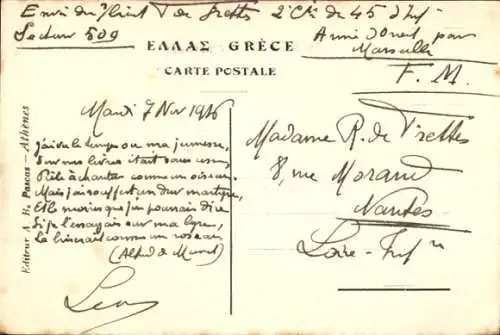 Envoi du s/Lieut de Trettes 2e Cie du 45 d'Inf
Secteur 509
Armée d'Orient par
Marseille
F. M.
ΕΛΛΑΣ GRÈCE
CARTE POSTALE
Editeur A. B. Pascas – Athènes
Mardi 7 Nov 1916
J'ai vu le temps où ma jeunesse,
Sur mes lèvres était sans cesse
Prête à chanter comme un oiseau.
Mais j'ai souffert un dur martyre,
Et le moins que j'en pourrais dire
Si je l'essayais sur ma lyre,
La briserait comme un roseau
(Alfred de Musset)
Léon
Madame R. de Trettes
8, rue Morand
Nantes
Loire-Infre